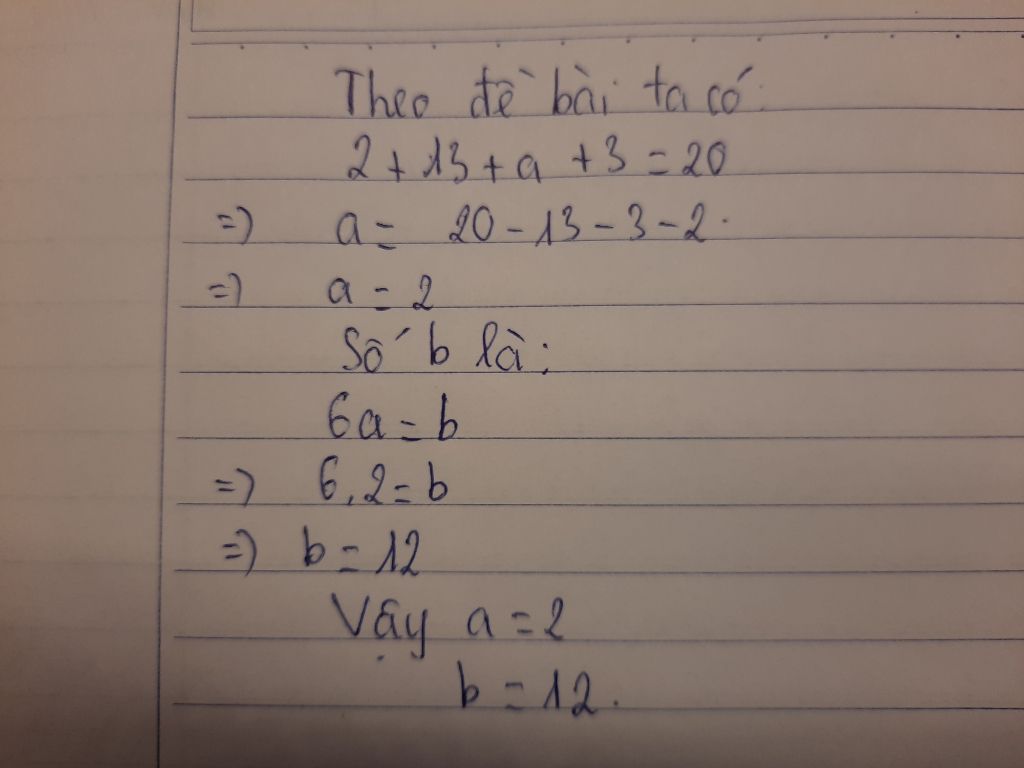 Theo đề bài ta có:
2 + 13 + a + 3 = 20
=) a = 20 - 13 - 3 - 2.
=) a = 2
Số b là:
6a = b
=) 6.2 = b
=) b = 12
Vậy a = 2
b = 12.